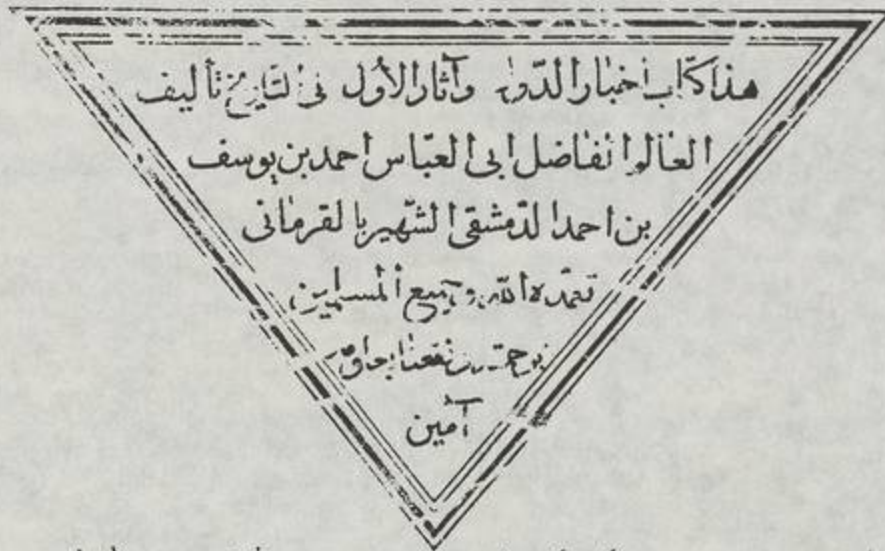 هذا كتاب أخبار الدول وآثار الأول في التاريخ تأليف
العالم الفاضل ابى العبّاس احمد بن يوسف
بن احمد الدّمشقى الشّهير بالقرمانى
تغمّده اللّه وجميع المسلمين
برحمته ونفعنا
آمين